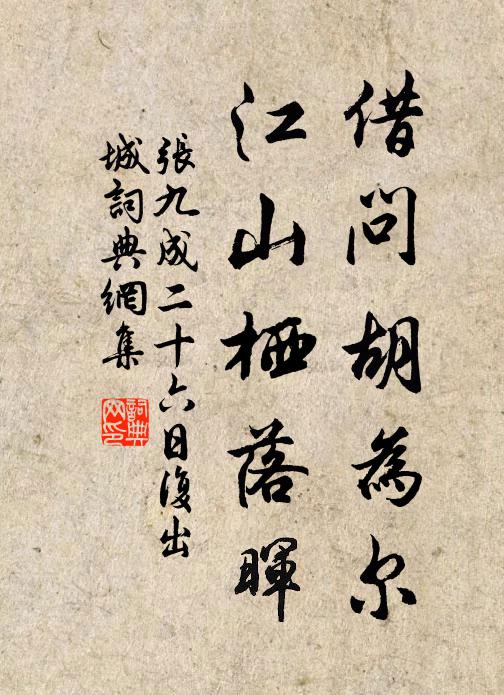 借問胡為尔
江山栖落暉
張九成二十六日復出
城詞典網集
詞典网印